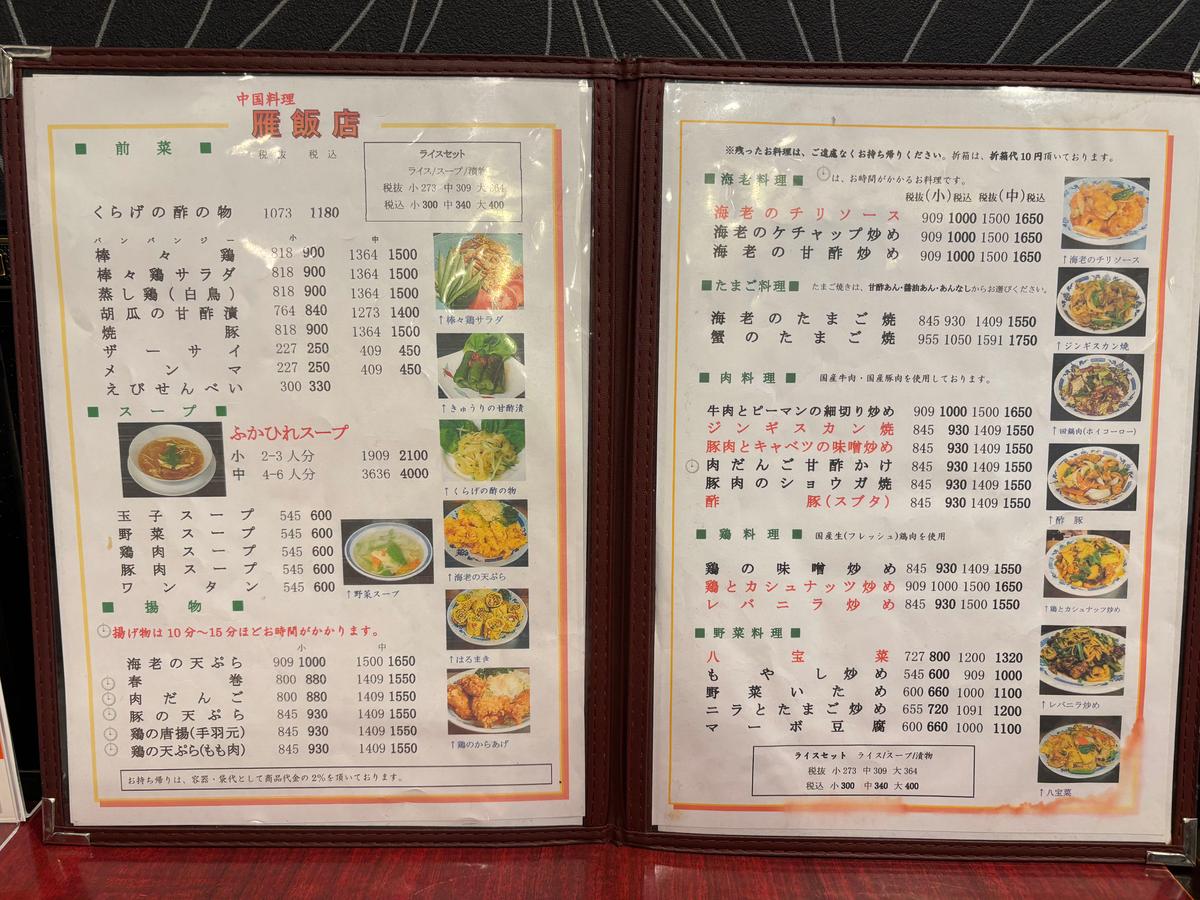 中国料理
雁飯店
■ 前菜 ■
税抜 税込
ライスセット
ライス/スープ/漬物
税抜 小273 中309 大364
税込 小300 中340 大400
くらげの酢の物 1073 1180
バンバンジー 小 中
棒々鶏 818 900 1364 1500
棒々鶏サラダ 818 900 1364 1500
蒸し鶏(白鳥) 818 900 1364 1500
胡瓜の甘酢漬 764 840 1273 1400
焼豚 818 900 1364 1500
ザーサイ 227 250 409 450
メンマ 227 250 409 450
えびせんべい 300 330
↑棒々鶏サラダ
↑きゅうりの甘酢漬
↑くらげの酢の物
↑海老の天ぷら
↑はるまき
↑鶏のからあげ
■ スープ ■
ふかひれスープ
小 2-3人分 1909 2100
中 4-6人分 3636 4000
玉子スープ 545 600
野菜スープ 545 600
鶏肉スープ 545 600
豚肉スープ 545 600
ワンタン 545 600
↑野菜スープ
■ 揚物 ■
揚げ物は10分～15分ほどお時間がかかります。
小 中
海老の天ぷら 909 1000 1500 1650
春巻 800 880 1409 1550
肉だんご 800 880 1409 1550
豚の天ぷら 845 930 1409 1550
鶏の唐揚(手羽元) 845 930 1409 1550
鶏の天ぷら(もも肉) 845 930 1409 1550
お持ち帰りは、容器・袋代として商品代金の2%を頂いております。
※残ったお料理は、ご遠慮なくお持ち帰りください。折箱は、折箱代10円頂いております。
■海老料理■ は、お時間がかかるお料理です。
税抜(小)税込 税抜(中)税込
海老のチリソース 909 1000 1500 1650
海老のケチャップ炒め 909 1000 1500 1650
海老の甘酢炒め 909 1000 1500 1650
■たまご料理■ たまご焼きは、甘酢あん・醤油あん・あんなしからお選びください。
海老のたまご焼 845 930 1409 1550
蟹のたまご焼 955 1050 1591 1750
■ 肉料理 ■ 国産牛肉・国産豚肉を使用しております。
牛肉とピーマンの細切り炒め 909 1000 1500 1650
ジンギスカン焼 845 930 1409 1550
豚肉とキャベツの味噌炒め 845 930 1409 1550
肉だんご甘酢かけ 845 930 1409 1550
豚肉のショウガ焼 845 930 1409 1550
酢豚(スブタ) 845 930 1409 1550
■ 鶏料理 ■ 国産生(フレッシュ)鶏肉を使用
鶏の味噌炒め 845 930 1409 1550
鶏とカシュナッツ炒め 909 1000 1500 1650
レバニラ炒め 845 930 1500 1550
■野菜料理■
八宝菜 727 800 1200 1320
もやし炒め 545 600 909 1000
野菜いため 600 660 1000 1100
ニラとたまご炒め 655 720 1091 1200
マーボ豆腐 600 660 1000 1100
ライスセット ライス/スープ/漬物
税抜 小273 中309 大364
税込 小300 中340 大400
↑海老のチリソース
↑ジンギスカン焼
↑回鍋肉(ホイコーロー)
↑酢豚
↑鶏とカシュナッツ炒め
↑レバニラ炒め
↑八宝菜